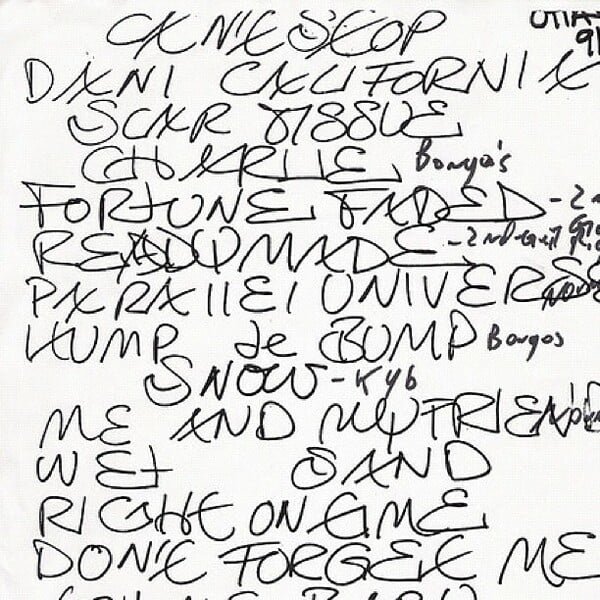 CAN'T STOP
OTTA
DANI CALIFORNIA
SCAR TISSUE
CHARLIE Bongo's
FORTUNE FADED - 2
READYMADE - 2nd Guit
PARALLEL UNIVERSE
HUMP de BUMP Bongos
SNOW - KYB
ME AND MY FRIEND
WET SAND
RIGHT ON TIME
DON'T FORGET ME